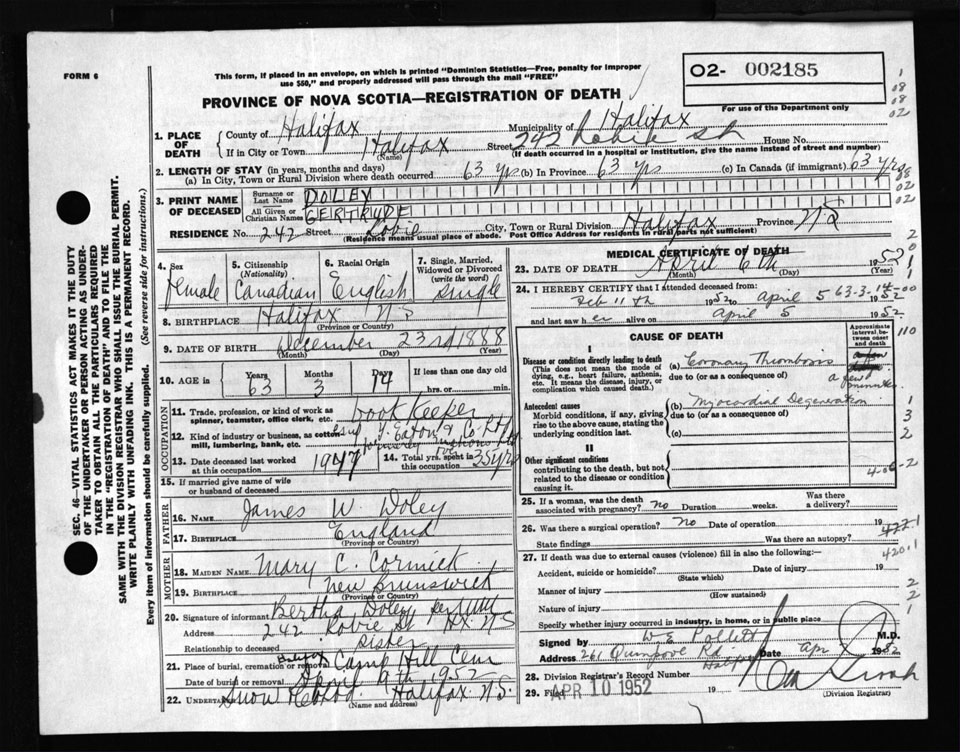 FORM 6
This form, if placed in an envelope, on which is printed "Dominion Statistics—Free, penalty for improper
use $50," and properly addressed will pass through the mail "FREE"
O2- 002185
For use of the Department only
PROVINCE OF NOVA SCOTIA—REGISTRATION OF DEATH
1. PLACE OF DEATH
County of Halifax Municipality of Halifax
If in City or Town Halifax (Name) Street 242 Robie St House No.
(If death occurred in a hospital or institution, give the name instead of street and number)
2. LENGTH OF STAY (in years, months and days)
(a) In City, Town or Rural Division where death occurred 63 yrs (b) In Province 63 yrs (c) In Canada (if immigrant) 63 yrs
3. PRINT NAME OF DECEASED
Surname or Last Name DOLEY
All Given or Christian Names GERTRUDE
RESIDENCE No. 242 Street Robie City, Town or Rural Division Halifax Province N.S
(Residence means usual place of abode. Post Office Address for residents in rural parts not sufficient)
4. Sex Female
5. Citizenship (Nationality) Canadian
6. Racial Origin English
7. Single, Married, Widowed or Divorced (write the word) Single
8. BIRTHPLACE Halifax N.S
(Province or Country)
9. DATE OF BIRTH December 23rd 1888
(Month) (Day) (Year)
10. AGE in Years 63 Months 3 Days 14 If less than one day old hrs. or min.
OCCUPATION
11. Trade, profession, or kind of work as spinner, teamster, office clerk, etc. book keeper
12. Kind of industry or business, as cotton mill, lumbering, bank, etc. T. Eaton & Co.
13. Date deceased last worked at this occupation 1947
14. Total yrs. spent in this occupation 35 yrs
15. If married give name of wife or husband of deceased
FATHER
16. NAME James W. Doley
17. BIRTHPLACE England
(Province or Country)
MOTHER
18. MAIDEN NAME Mary C. Cormick
19. BIRTHPLACE New Brunswick
(Province or Country)
20. Signature of informant Bertha Doley per
Address 242 Robie St Hx. N.S
Relationship to deceased Sister
21. Place of burial, cremation or removal Halifax Camp Hill Cem
Date of burial or removal April 9th 1952
22. UNDERTAKER Snow Halifax N.S.
(Name and address)
MEDICAL CERTIFICATE OF DEATH
23. DATE OF DEATH April 6th 1952
(Month) (Day) (Year)
24. I HEREBY CERTIFY that I attended deceased from:
Feb 11th 1952 to April 5 1952
and last saw her alive on April 5 1952
63-3-14-00
CAUSE OF DEATH
Approximate interval between onset and death
I
Disease or condition directly leading to death
(This does not mean the mode of dying, e.g., heart failure, asthenia, etc. It means the disease, injury, or complication which caused death)
(a) Coronary Thrombosis
due to (or as a consequence of)
a few minutes
Antecedent causes
Morbid conditions, if any, giving rise to the above cause, stating the underlying condition last.
(b) Myocardial Degeneration
due to (or as a consequence of)
(c)
II
Other significant conditions
contributing to the death, but not related to the disease or condition causing it.
25. If a woman, was the death associated with pregnancy? no Duration weeks. Was there a delivery?
26. Was there a surgical operation? no Date of operation 19
State findings Was there an autopsy?
27. If death was due to external causes (violence) fill in also the following:—
Accident, suicide or homicide? Date of injury 19
(State which)
Manner of injury
(How sustained)
Nature of injury
Specify whether injury occurred in industry, in home, or in public place
Signed by W E Pollett M.D.
Address 261 Quinpool Rd. Halifax Date Apr 1952
28. Division Registrar's Record Number
29. Filed APR 10 1952 19
(Division Registrar)
420.1
SEC. 46—VITAL STATISTICS ACT MAKES IT THE DUTY
OF THE UNDERTAKER OR PERSON ACTING AS UNDER-
TAKER TO OBTAIN ALL THE PARTICULARS REQUIRED
IN THE "REGISTRATION OF DEATH" AND TO FILE THE
SAME WITH THE DIVISION REGISTRAR WHO SHALL ISSUE THE BURIAL PERMIT.
WRITE PLAINLY WITH UNFADING INK. THIS IS A PERMANENT RECORD.
Every item of information should be carefully supplied. (See reverse side for instructions.)